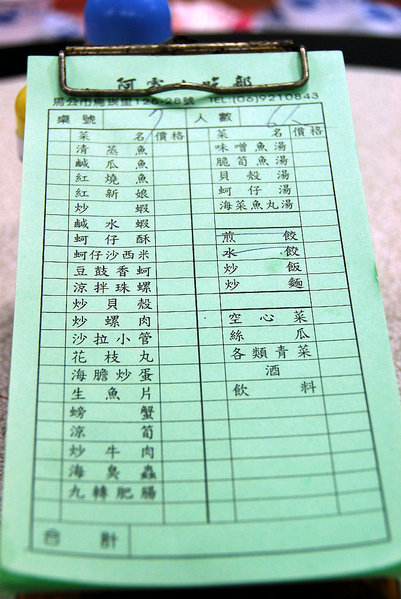 小吃部
馬公市烏崁里126-28號 TEL:(06)9210843
桌號 人數
菜名 價格
清蒸魚
鹹瓜魚
紅燒魚
紅新娘
炒蝦
鹹水蝦
蚵仔酥
蚵仔沙西米
豆鼓香蚵
涼拌珠螺
炒貝殼
炒螺肉
沙拉小管
花枝丸
海膽炒蛋
生魚片
螃蟹
涼筍
炒牛肉
海臭蟲
九轉肥腸
合計
菜名 價格
味噌魚湯
脆筍魚湯
貝殼湯
蚵仔湯
海菜魚丸湯
煎餃
水餃
炒飯
炒麵
空心菜
絲瓜
各類青菜
酒
飲料